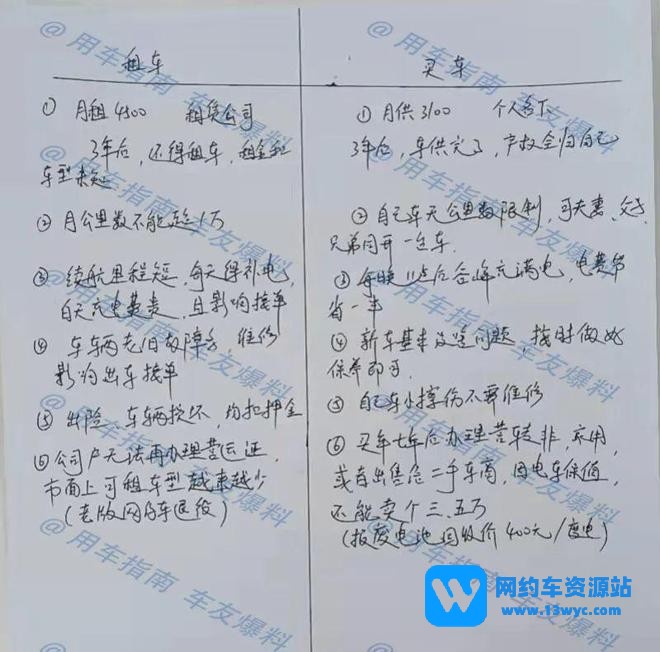 租车
① 月租4300 租赁公司
3年后,还得租车,租金和
车型未定
② 月公里数不能超1万
③ 续航里程短,每天得补电,
白天充电费贵,且影响接单
④ 车辆老旧故障多,维修
影响出车接单
⑤ 出险、车辆损坏,均扣押金
⑥ 公司户无法再办理营运证,
市面上可租车型越来越少
(老版网约车退役)
买车
① 月供3100 个人名下
3年后,车供完了,产权全归自己
② 自己车无公里数限制,可夫妻、父子、
兄弟同开一台车.
③ 每晚11点后谷峰充满电,电费节
省一半
④ 新车基本没啥问题,按时做好
保养即可.
⑤ 自己车小擦伤不需维修
⑥ 买车七年后办理营转非,家用,
或者出售给二手车商,因电车保值,
还能卖个三、五万
(报废电池回收价400元/度电)
@用车指南 车友爆料
@用车指南 车友爆料
@用车指南 车友爆料
@用车指南 车友爆料
网约车资源站
www.13wyc.com